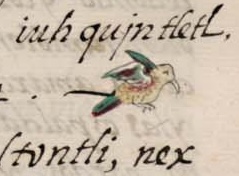 iuh qujn tletl.
tontli, nex